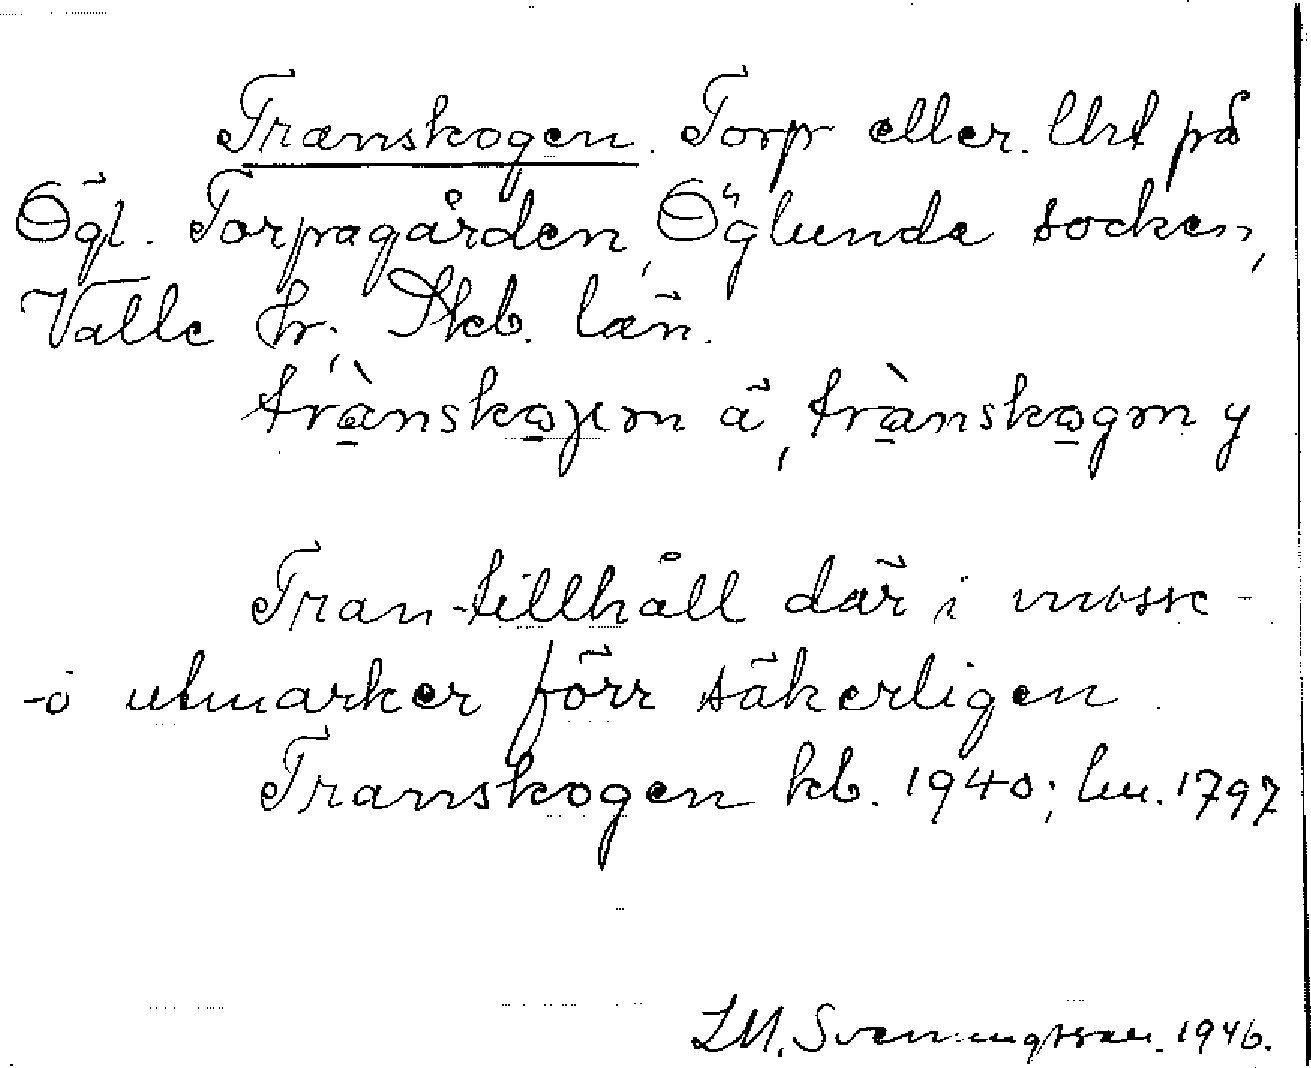 Transkogen. Torp eller. Utl på
Ögl. Torpagården, Öglunda socken,
Valle hr., Skb. län.
trànskojen ä, trànskogen y
Tran-tillhåll där i mosse-
-o utmarker förr säkerligen.
Transkogen kb. 1940; hu. 1797
LM. Svenungsson. 1946.